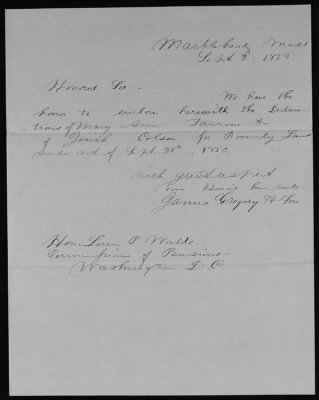 Marblehead, Mass
Sept 3, 1859
Honored Sir :-
We have the
honor to enclose herewith the Declara
tions of Mary Ann &
of Josiah Colson for Bounty Land
under act of Sept. 28th, 1850.
With great respect
Your Hum
James Gregory & Son
Hon. Loren P. Waldo.
Commissioner of Pensions.
Washington D.C.